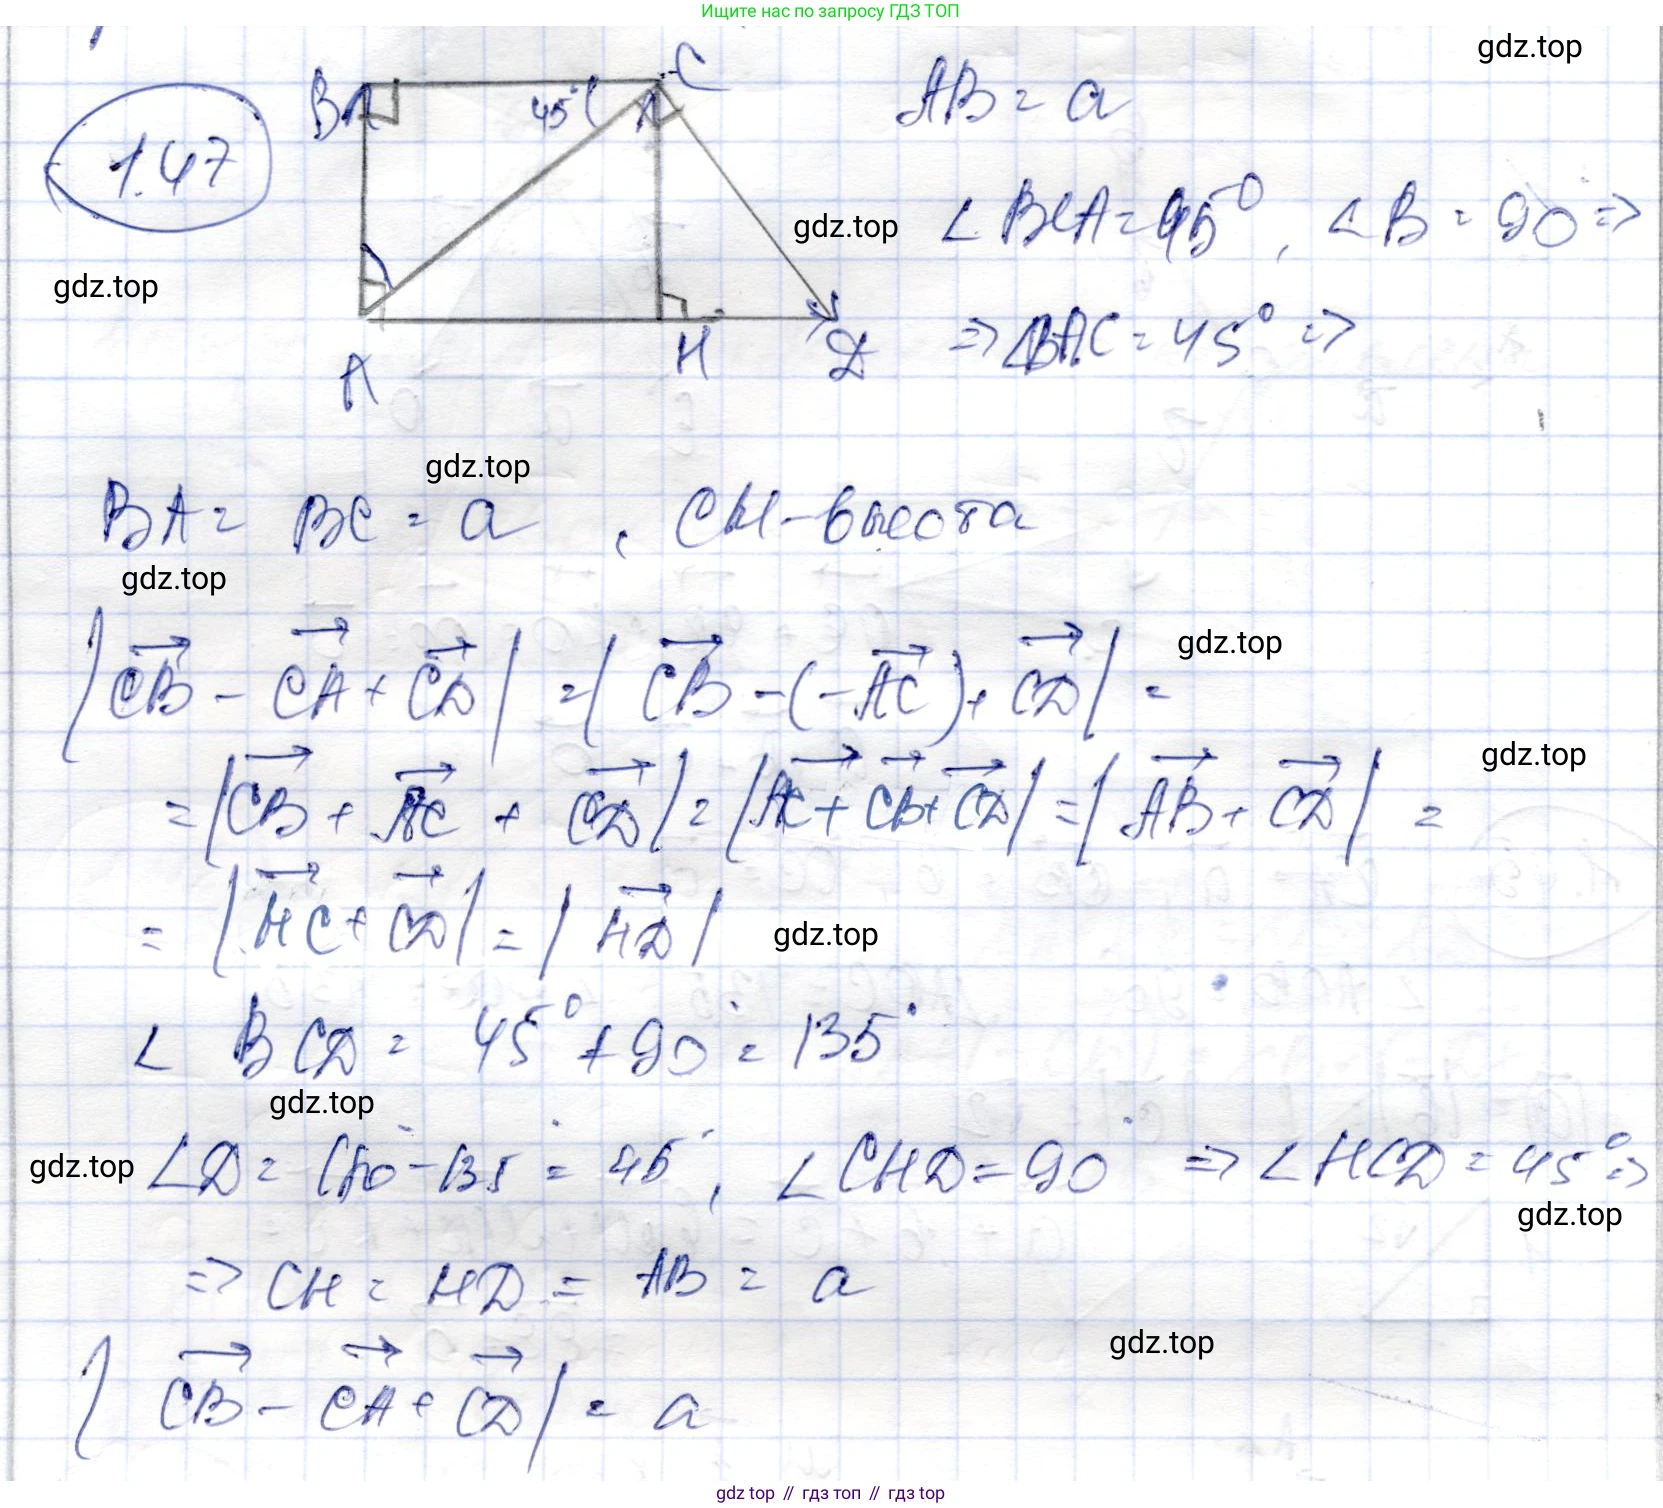 Ищите нас по запросу ГДЗ ТОП
gdz.top
1.47
B
45°
C
A
H
D
AB = a
gdz.top
∠BCA = 45°, ∠B = 90° ⇒
gdz.top
⇒ ∠BAC = 45° ⇒
gdz.top
BA = BC = a, CH - высота
gdz.top
|CB→ - CA→ + CD→| = |CB→ - (-AC→) + CD→| =
gdz.top
= |CB→ + AC→ + CD→| = |AC→ + CB→ + CD→| = |AB→ + CD→| =
gdz.top
= |HC→ + CD→| = |HD→|
gdz.top
∠BCD = 45° + 90° = 135°
gdz.top
gdz.top
∠D = 180° - 135° = 45°, ∠CHD = 90° ⇒ ∠HCD = 45° ⇒
gdz.top
⇒ CH = HD = AB = a
gdz.top
|CB→ - CA→ + CD→| = a
gdz top // гдз топ // гдз top